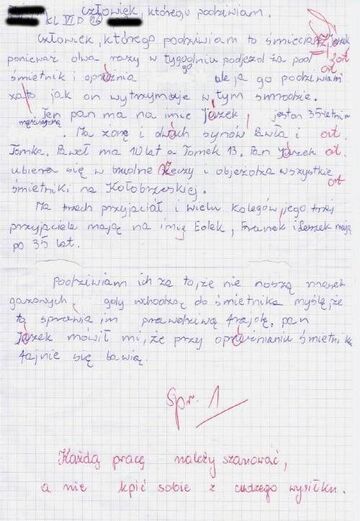 Człowiek, którego podziwiam.
KL VI D
Człowiek, którego podziwiam to śmieciarz,
ponieważ dwa razy w tygodniu podjeżdża pod ort
śmietnik i opróżnia go ale ja go podziwiam ort
za to jak on wytrzymuje w tym smrodzie.
Ten pan ma na imię Jacek, jest on 35-letnim
mężczyzną. Ma żonę i dwóch synów Pawła i ort
Tomka. Paweł ma 10 lat a Tomek 13. Pan Jacek ort
ubiera się w brudne rzeczy i objeżdża wszystkie
śmietniki na Kołobrzeskiej. ort
Ma trzech przyjaciół i wielu kolegów, jego trzy
przyjaciele mają na imię Lolek, Franek i Leszek mają
po 35 lat.
Podziwiam ich za to, że nie noszą masek
gazowych, gdy wchodzą do śmietnika myślę, że
to sprawia im prawdziwą frajdę, pan
Jacek mówił mi, że przy opróżnianiu śmietnika
fajnie się bawią.
Spr. 1
Każdą pracę należy szanować,
a nie kpić sobie z cudzego wysiłku.